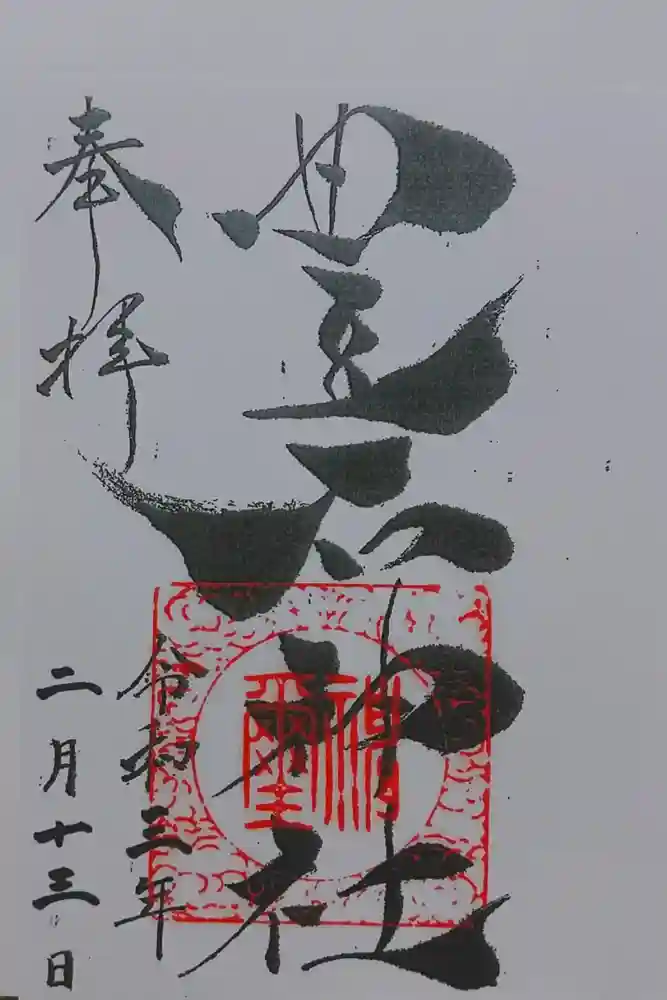 奉拝
豊
神社
神璽
令和三年
二月十三日